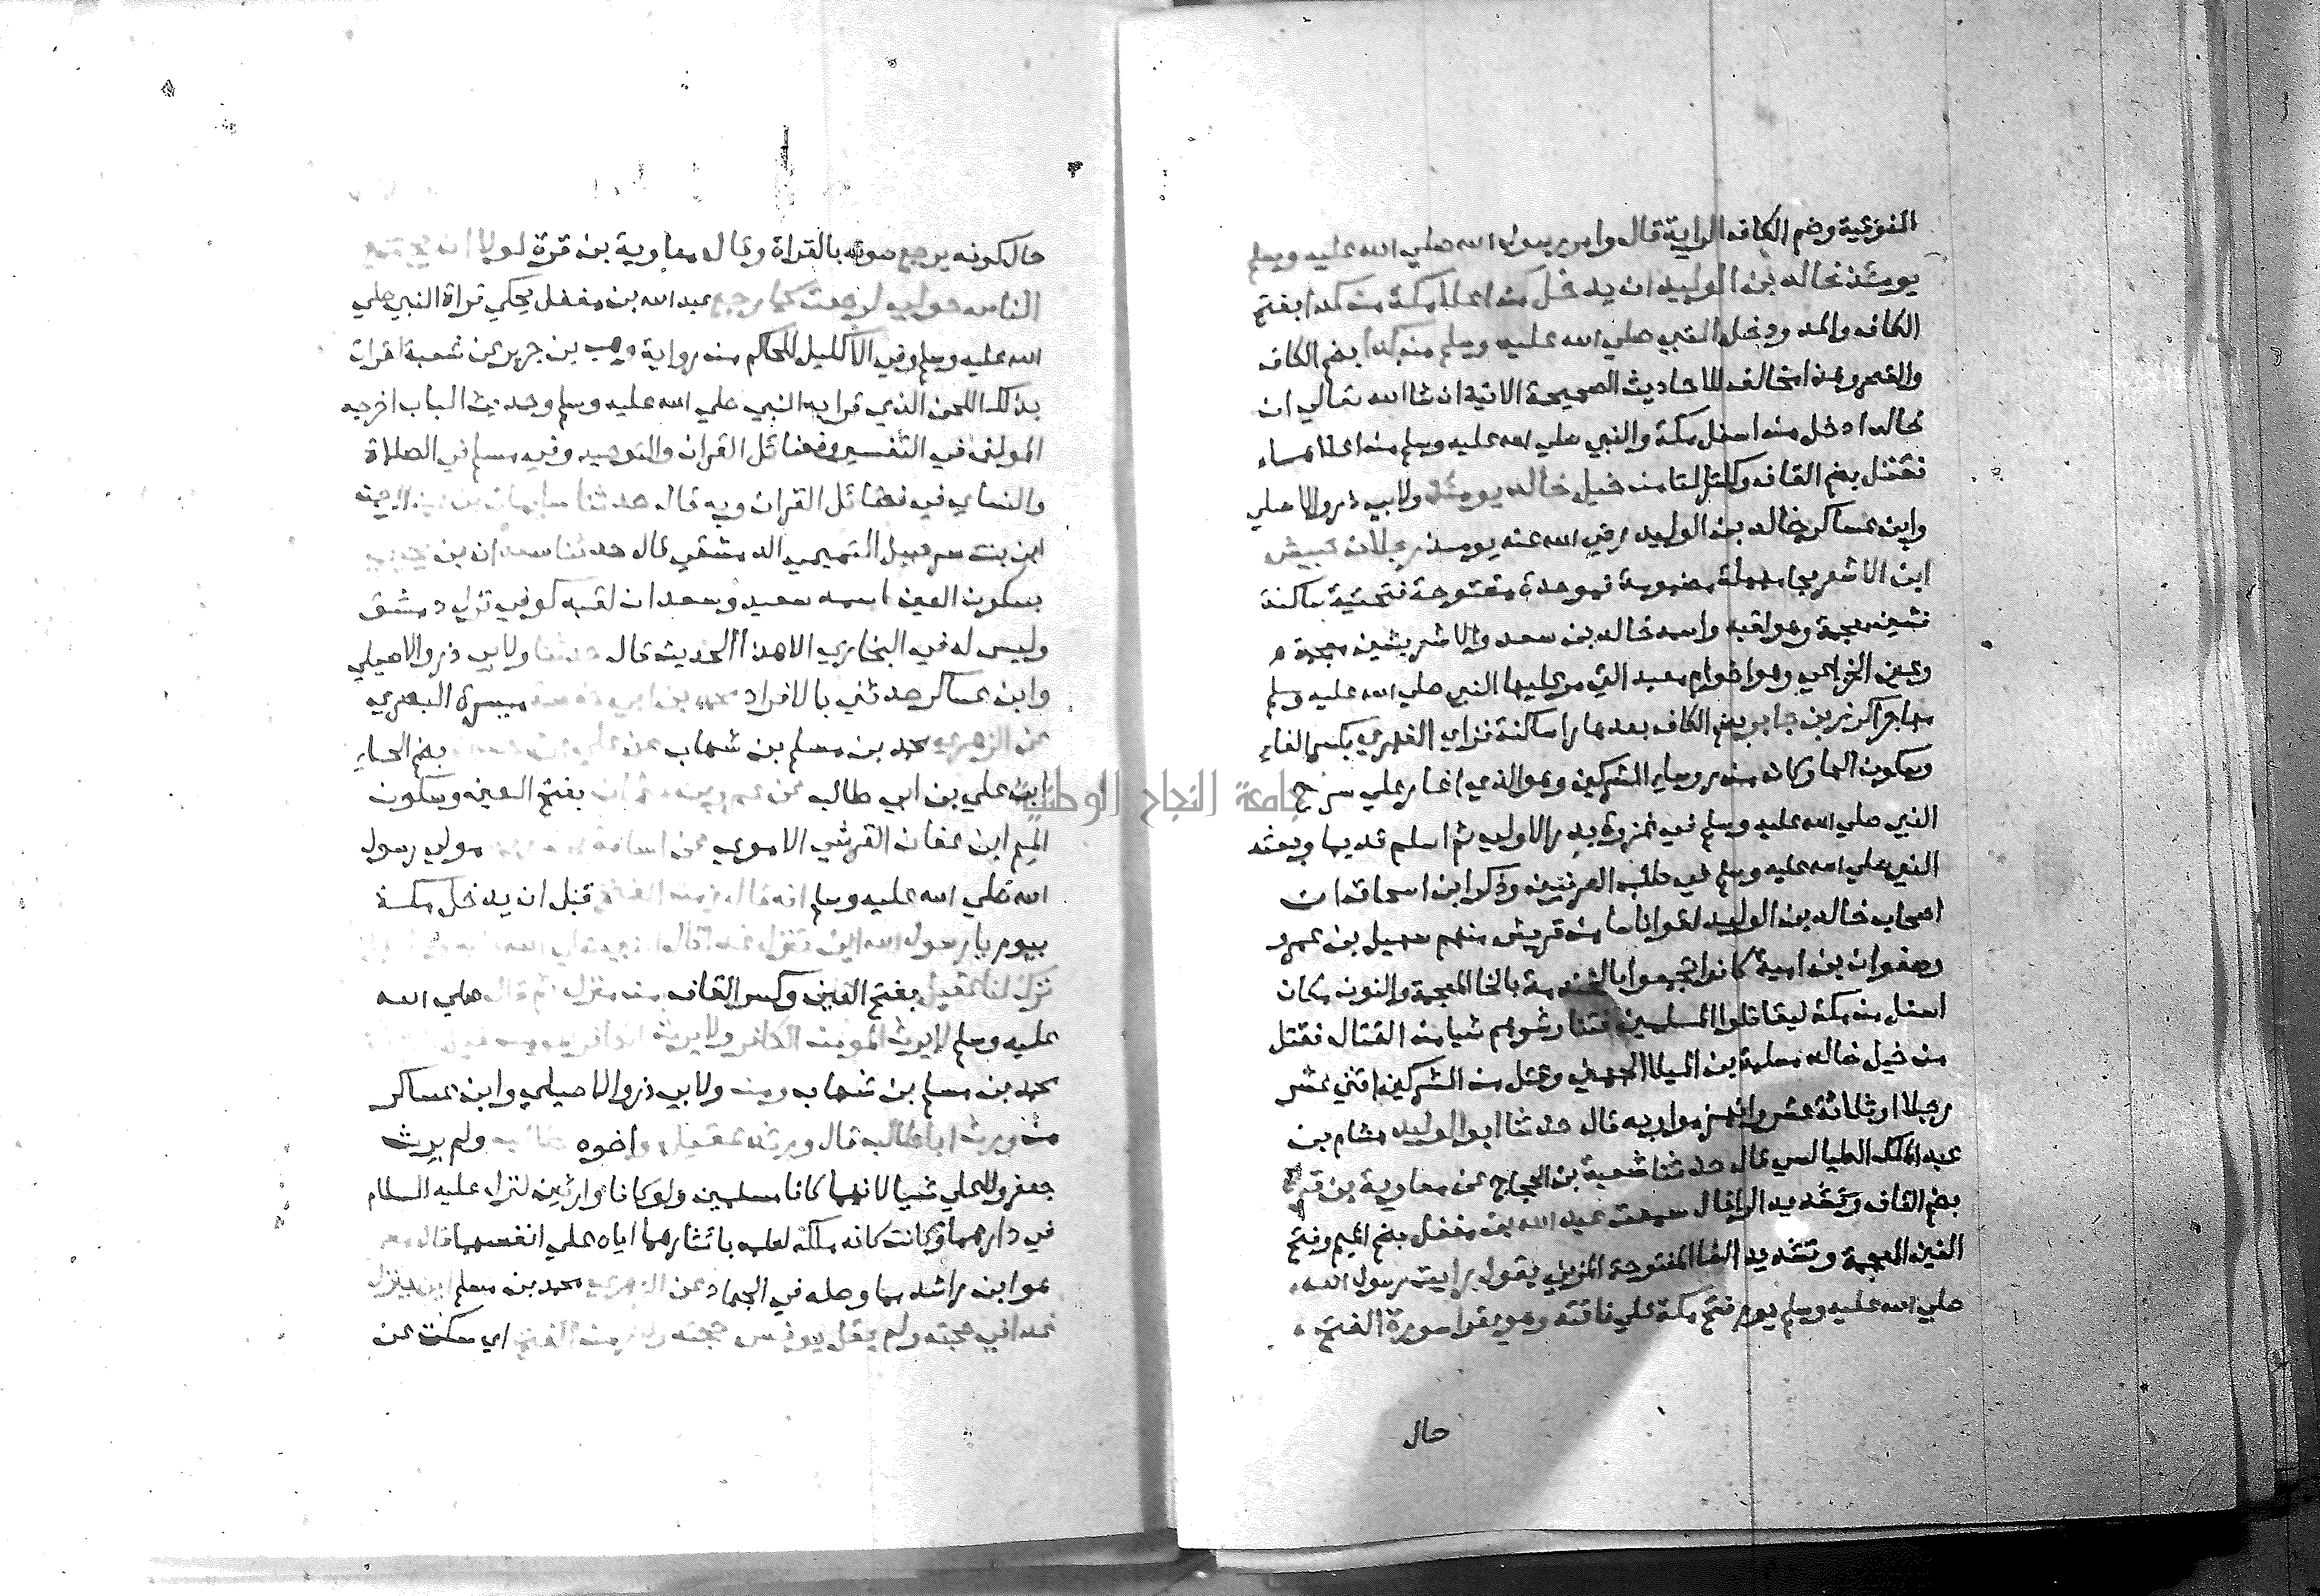 الفوقية وضم الكاف الراية قال وامر رسول الله صلي الله عليه وسلم
يومئذ خالد بن الوليد ان يدخل من اعلا مكة من كدا بفتح
الكاف والمد ودخل النبي صلي الله عليه وسلم من كدا بضم الكاف
والقصر وهذا مخالف للاحاديث الصحيحة الاتية ان شا الله تعالي ان
خالدا دخل من اسفل مكة والنبي صلي الله عليه وسلم من اعلاها
فقتل بضم القاف وكسر التا من خيل خالد يومئذ ولابي ذر والاصيلي
وابن عساكر خالد بن الوليد رضي الله عنه يومئذ رجلان حبيش
ابن الاشعر بحا مهملة مضمومة فموحدة مفتوحة فتحتية ساكنة
فشين معجمة وهو لقبه واسمه خالد بن سعد والاشعر بشين معجمة
وعين الخزاعي وهو اخو ام معبد التي مر عليها النبي صلي الله عليه وسلم
مهاجرا كرز بن جابر بضم الكاف بعدها را ساكنة فزاي الفهري بكسر الفاء
وسكون الها وكان من روساء المشركين وهو الذي اغار علي سرح
النبي صلي الله عليه وسلم في غزوة بدر الاولي ثم اسلم قديما وبعثه
النبي صلي الله عليه وسلم في طلب العرنيين وذكر ابن اسحاق ان
اصحاب خالد بن الوليد لقوا ناسا من قريش منهم سهيل بن عمرو
وصفوان بن امية كانوا تجمعوا بالخندمة بالخا المعجمة والنون مكان
اسفل من مكة ليقاتلوا المسلمين فتناوشوهم شيا من القتال فقتل
من خيل خالد مسلمة بن الميلا الجهني وقتل من المشركين اثني عشر
رجلا او ثلاثة عشر وانهزموا وبه قال حدثنا ابو الوليد هشام بن
عبد الملك الطيالسي قال حدثنا شعبة بن الحجاج عن معاوية بن قرة
بضم القاف وتشديد الرا قال سمعت عبد الله بن مغفل بضم الميم وفتح
الغين المعجمة وتشديد الفا المفتوحة المزني يقول رايت رسول الله
صلي الله عليه وسلم يوم فتح مكة علي ناقته وهو يقرا سورة الفتح
حال
حال كونه يرجع صوته بالقراة وقال معاوية بن قرة لولا ان يجتمع
الناس حولي لرجعت كما رجع عبد الله بن مغفل يحكي قراة النبي صلي
الله عليه وسلم وفي الاكليل للحاكم من رواية وهب بن جرير عن شعبة لقرات
بذلك اللحن الذي قرا به النبي صلي الله عليه وسلم وحديث الباب اخرجه
المولف في التفسير وفضائل القران والتوحيد وفي مسلم في الصلاة
والنساي في فضائل القران وبه قال حدثنا سليمان بن عبد الرحمن
ابن بنت شرحبيل التميمي الدمشقي قال حدثنا سعدان بن يحيي
بسكون العين اسمه سعيد وسعدان لقبه كوفي نزل دمشق
وليس له في البخاري الا هذا الحديث قال حدثنا ولابي ذر والاصيلي
وابن عساكر حدثني بالافراد محمد بن ابي حفصة ميسرة البصري
عن الزهري محمد بن مسلم بن شهاب عن علي بن حسين بضم الحاء
ابن علي بن ابي طالب عن عمرو بن عثمان بفتح العين وسكون
الميم ابن عفان القرشي الاموي عن اسامة بن زيد مولي رسول
الله صلي الله عليه وسلم انه قال زمن الفتح قبل ان يدخل مكة
بيوم يا رسول الله اين تنزل غدا قال النبي صلي الله عليه وسلم
ترك لنا عقيل بفتح العين وكسر القاف من منزل ثم قال صلي الله
عليه وسلم لا يرث المومن الكافر ولا يرث الكافر المومن قيل
محمد بن مسلم بن شهاب ومن ولابي ذر والاصيلي وابن عساكر
من ورث ابا طالب قال ورثه عقيل واخوه طالب ولم يرث
جعفر ولا علي شيا لانهما كانا مسلمين ولو كانا وارثين لنزل عليه السلام
في دارهما وكانت كانها ملكه لعلمه بايثارهما اياه علي انفسهما قال معمر
هو ابن راشد مما وصله في الجهاد عن الزهري محمد بن مسلم اين تنزل
غدا في حجته ولم يقل يونس حجته ولا زمن الفتح اي سكت عن
جامعة النجاح الوطنية